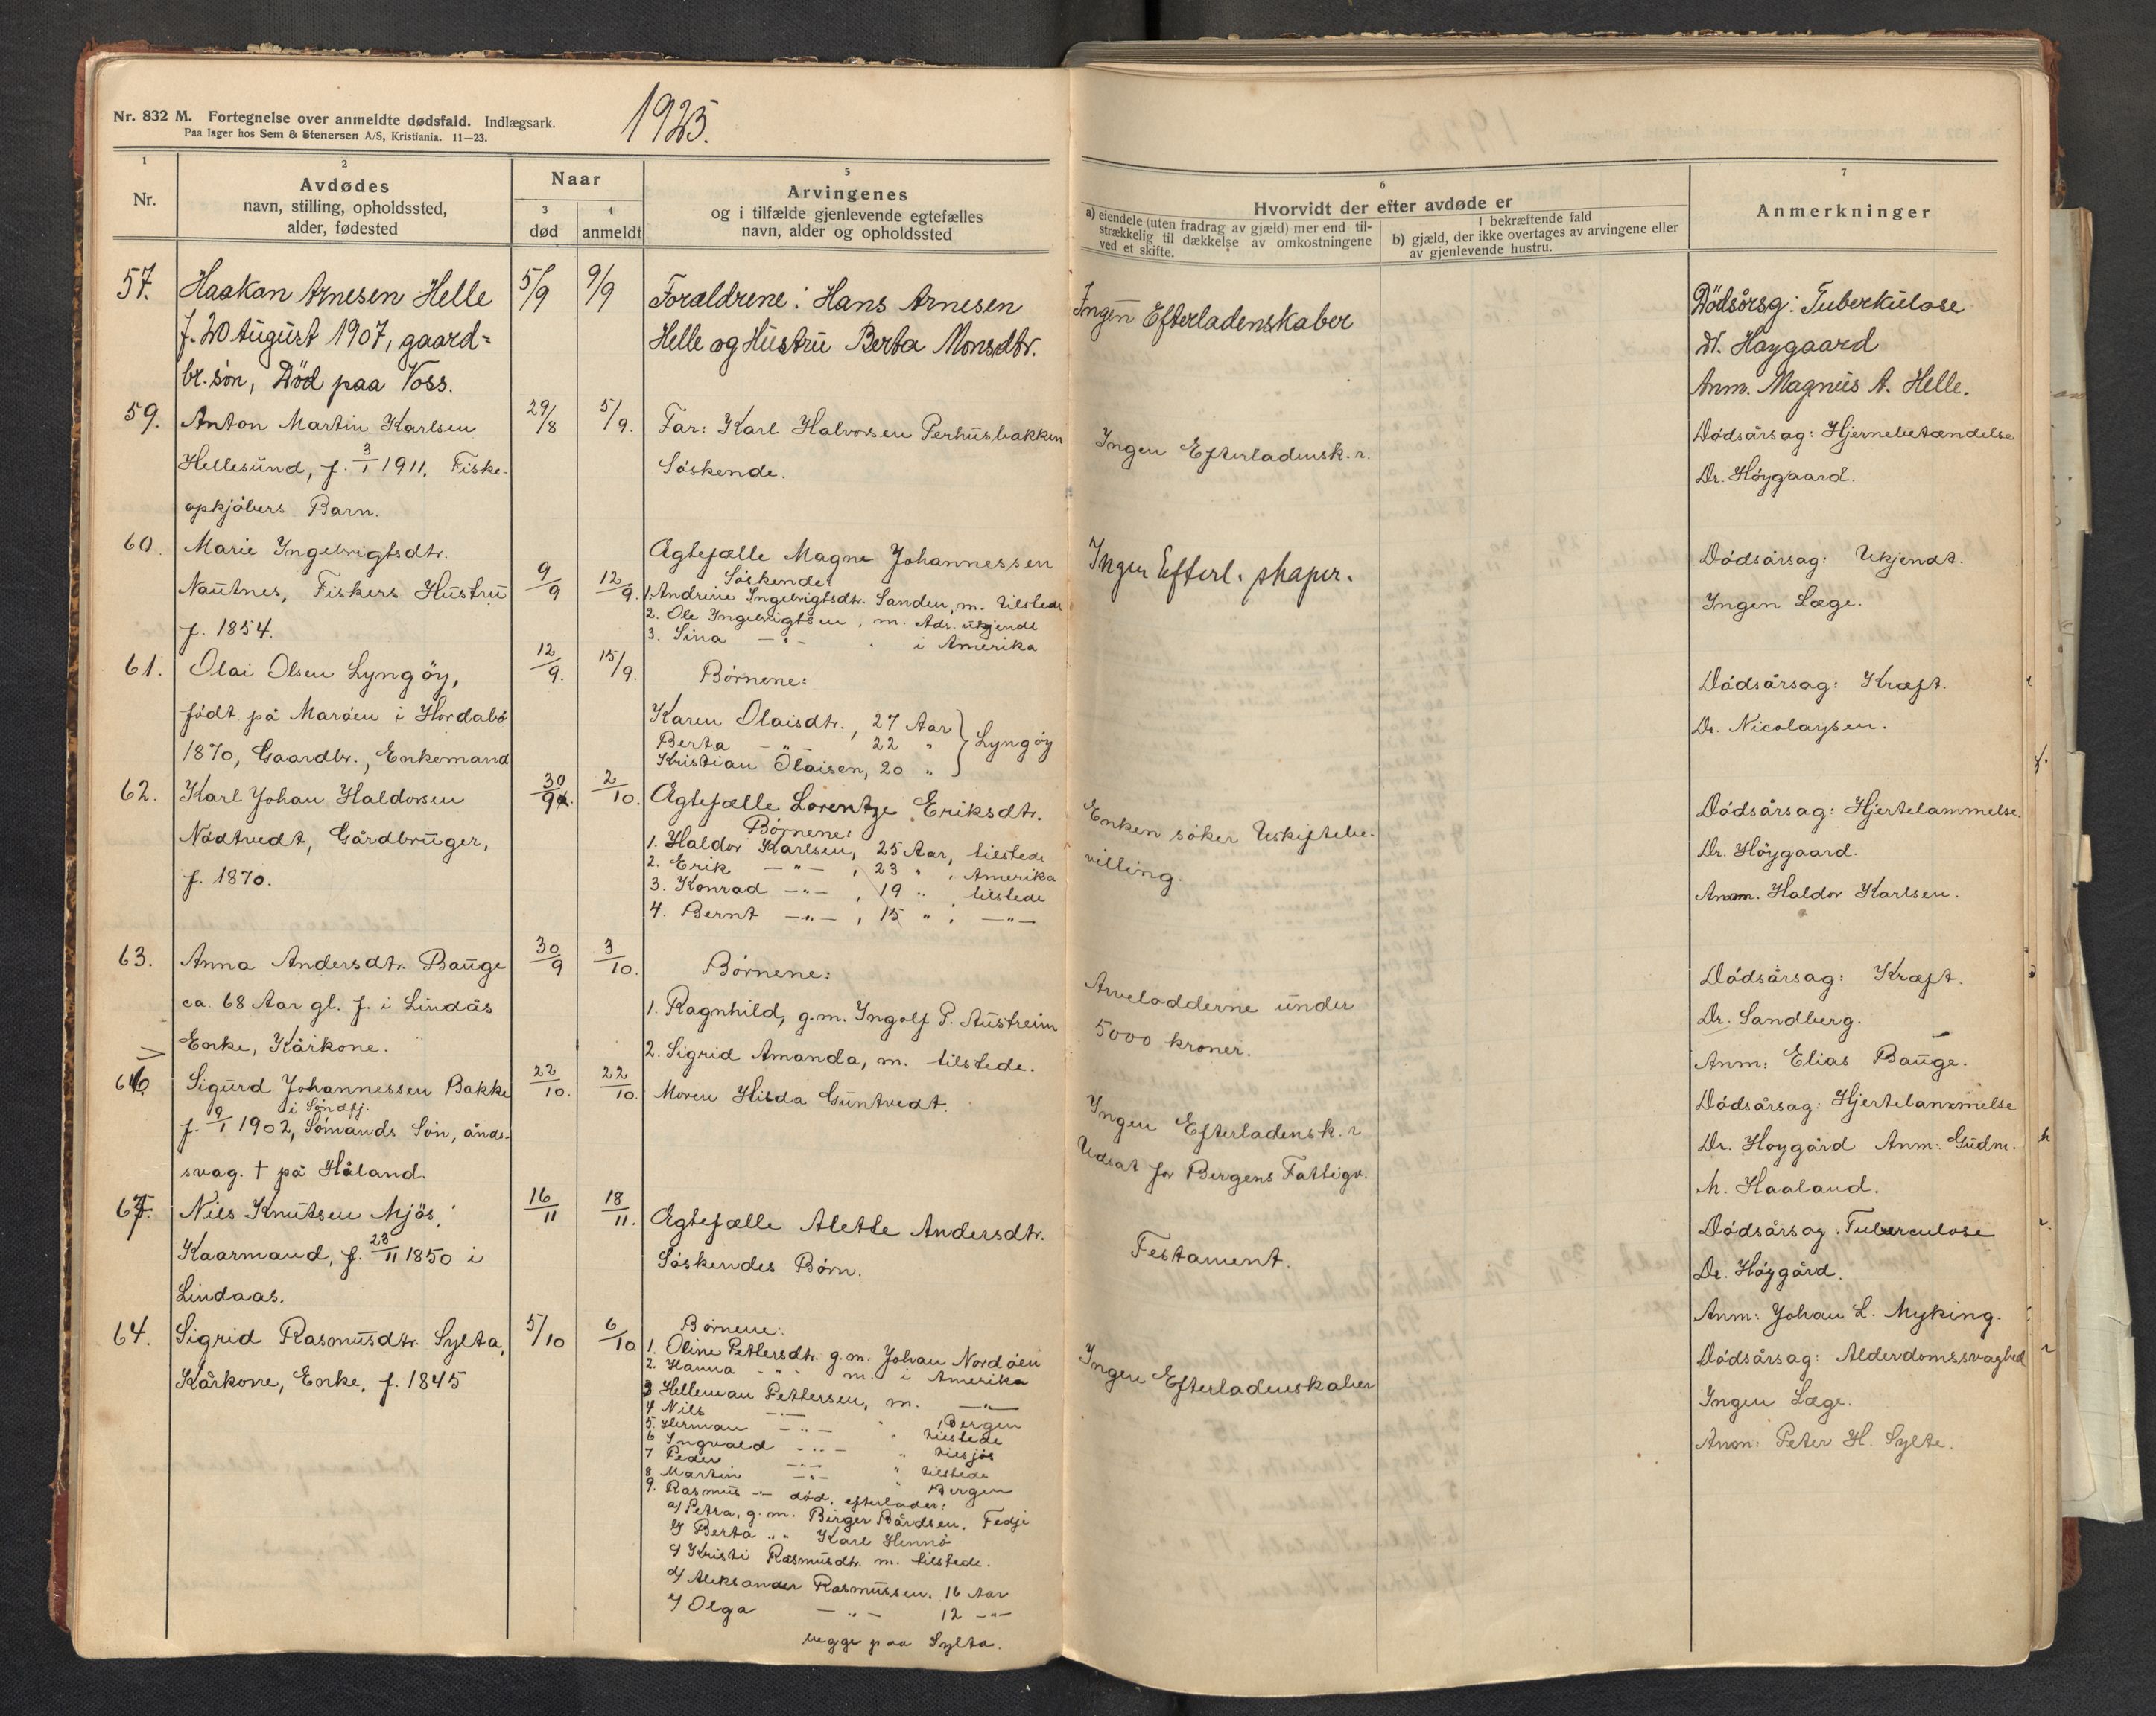 Nr. 832 M. Fortegnelse over anmeldte dødsfald. Indlægsark.
Paa lager hos Sem & Stenersen A/S, Kristiania. 11—23.
1925.
1
Nr.
2
Avdødes
navn, stilling, opholdssted,
alder, fødested
Naar
3
død
4
anmeldt
5
Arvingenes
og i tilfælde gjenlevende egtefælles
navn, alder og opholdssted
6
Hvorvidt der efter avdøde er
a) eiendele (uten fradrag av gjæld) mer end til-
strækkelig til dækkelse av omkostningene
ved et skifte.
I bekræftende fald
b) gjæld, der ikke overtages av arvingene eller
av gjenlevende hustru.
7
Anmerkninger
57. Haakon Arnesen Helle 5/9 9/9 Forældrene: Hans Arnesen Ingen Efterladenskaber Dødsårsg: Tuberkulose
f. 20 August 1907, gaard- Helle og Hustru Berta Monsdtr. Dr. Høygaard
br. søn, Død paa Voss. Anm. Magnus A. Helle.
59. Anton Martin Karlsen 29/8 5/9. Far: Karl Halvorsen Perhusbakken Ingen Efterladensk.r. Dødsårsag: Hjernebetændelse
Hellesund, f. 3/1 1911. Fiske- Søskende. Dr. Høygaard.
opkjøbers Barn.
60. Marie Ingebrigtsdtr. Ægtefælle Magne Johannessen Ingen Efterl.skaper. Dødsårsag: Ukjendt.
Nautnes, Fiskers Hustru 9/9 12/9. Søskende: Ingen Læge.
1. Andrine Ingebrigtsdtr. Sanden, m. tilstede
f. 1854. 2. Ole Ingebrigtsen, m. Ads. ukjendt
3. Sina —"— " i Amerika
61. Olai Olsen Lyngøy, 12/9. 15/9. Børnene: Dødsårsag: Kræft.
født på Marøen i Hordabø Karen Olaisdtr., 27 Aar } Lyngøy Dr. Nicolaysen.
1870, Gaardbr., Enkemand Berta —"— 22 "
Kristian Olaisen, 20 "
62. Karl Johan Haldorsen 30/9. 2/10. Ægtefælle Lorentze Eriksdtr. Enken søker Uskiftebe- Dødsårsag: Hjertelammelse.
Nødtvedt, Gårdbruger, Børnene: villing. Dr. Høygaard.
1. Haldor Karlsen, 25 Aar, tilstede
2. Erik —"—, 23 ", Amerika
f. 1870. 3. Konrad —"—, 19 ", tilstede Anm. Haldor Karlsen.
4. Bernt —"—, 15 ", —"—
63. Anna Andersdtr. Bauge 30/9 3/10. Børnene: Arvelodderne under Dødsårsag: Kræft.
ca. 68 Aar gl. f. i Lindås 1. Ragnhild, g.m. Ingolf P. Austreim 5000 kroner. Dr. Sandberg.
Enke, Kårkone. 2. Sigrid Amanda, m. tilstede. Anm: Elias Bauge.
66. Sigurd Johannessen Bakke 22/10. 22/10. Moren Hilda Guntvedt. Ingen Efterladensk.r Dødsårsag: Hjertelammelse
i Søndfj.
f. 9/1 1902, Sømands Søn, ånds- Udsat for Bergens Fattigv. Dr. Høygård Anm: Gudm.
svag. † på Håland. M. Haaland.
67. Nils Knutsen Mjøs, 16/11 18/11. Ægtefælle Alette Andersdtr. Testament. Dødsårsag: Tuberculose
Kaarmand, f. 23/11 1850 i Søskendes Børn. Dr. Høygård.
Lindaas. Anm: Johan L. Myking.
64. Sigrid Rasmusdtr. Sylta, 5/10 6/10 Børnene: Ingen Efterladenskaber Dødsårsag: Alderdomssvaghed
Kårkone, Enke, f. 1845 1. Oline Pettersdtr. g.m. Johan Nordøen Ingen Læge.
2. Hanna —"— m. i Amerika Anm: Peter H. Sylte.
3 Helleman Pettersen, m. —"—
4 Nils —"— " , Bergen
5. Herman —"— " tilstede
6 Ingvald —"— " tilsjøs
7 Peder —"— " tilstede
8 Martin —"— " Bergen
9. Rasmus —"— død, efterlader:
a/ Petra, g.m. Birger Bårdsen. Fedje
b/ Berta " " Karl Hennø
c/ Kristi Rasmusdtr. m. tilstede.
d/ Aleksander Rasmussen, 16 Aar
e/ Olga —"— 12 —"—
begge paa Sylta.